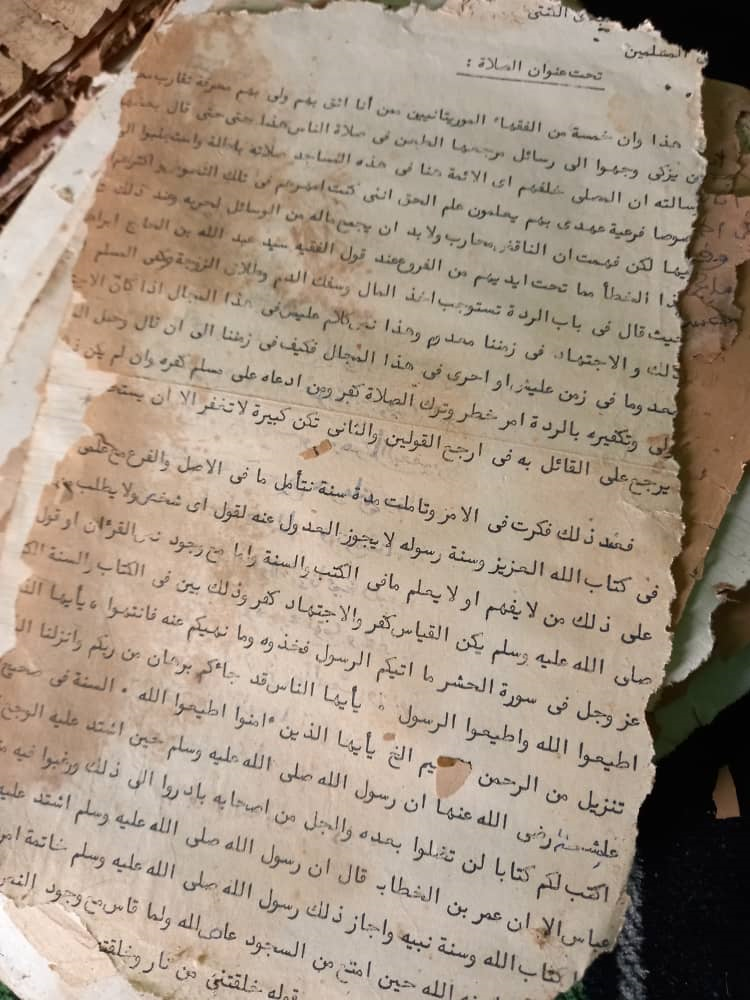 المسلمين
تحت عنوان الصلاة :
هذا وان خمسة من الفقهاء الموريتانيين ممن أنا اثق بهم ولى بهم معرفة تقارب
يزكى وجهوا الى رسائل مرجعها الطعن فى صلاة الناس هذا حتى حتى قال بعضهم
رسالته ان المصلى خلفهم اى الائمة هنا فى هذه المساجد صلاته باطلة
فرعية عهدى بهم يعلمون علم الحق اننى كنت فى تلك
لكن فهمت ان الناقض محارب ولا بد ان يجمع ماله من الوسائل لحربه وعند ذلك
الخطأ مما تحت ايديهم من الفروع عند قول الفقيه سيد عبد الله بن الحاج
حيث قال فى باب الردة تستوجب اخذ المال وسفك الدم وطلاق الزوجة
و الاجتهاد فى زمننا معدوم وهذا نص كلام عليش فى هذا المجال اذا كان
وما فى زمن عليش او احرى فى هذا المجال فكيف فى زمننا الى ان قال
وتكفيره بالردة امر خطر وترك الصلاة كفر ومن ادعاه على مسلم كفره وان لم يكن
يرجع على القائل به فى ارجح القولين والثانى تكن كبيرة لا تغفر الا ان
فعند ذلك فكرت فى الامر وتاملت مدة سنة نتأمل ما فى الاصل والفرع مع علمى
فى كتاب الله العزيز وسنة رسوله لا يجوز العدول عنه لقول اى شخص ولا يطلب
على ذلك من لا يفهم او لا يعلم مافى الكتب والسنة واما مع وجود نص القرءان او قول
صلى الله عليه وسلم يكن القياس كفر والاجتهاد كفر وذلك بين فى الكتاب والسنة
عز وجل فى سورة الحشر ما اتيكم الرسول فخذوه وما نهيكم عنه فانتهوا ٠ يأيها
اطيعوا الله واطيعوا الرسول ٠ يأيها الناس قد جاءكم برهان من ربكم وانزلنا
تنزيل من الرحمن الخ يأيها الذين ءامنوا اطيعوا الله ٠ السنة فى صحيح
رضى الله عنها ان رسول الله صلى الله عليه وسلم حين اشتد عليه الوجع
اكتب لكم كتابا لن تضلوا بعده والجل من اصحابه بادروا الى ذلك ورغبوا فيه
عباس الا ان عمر بن الخطاب قال ان رسول الله صلى الله عليه وسلم اشتد عليه
كتاب الله وسنة نبيه واجاز ذلك رسول الله صلى الله عليه وسلم خاتمة
الله حين امتنع من السجود عاص لله ولما قاس مع وجود النص
قوله خلقتنى من نار وخلقته